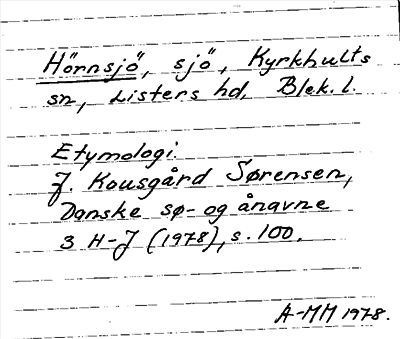 Hörnsjö, sjö, Kyrkhults
sn, Listers hd, Blek. l.
Etymologi.
J. Kousgård Sørensen,
Danske sø- og ånavne
3 H-J (1978), s. 100.
A-MM 1978.